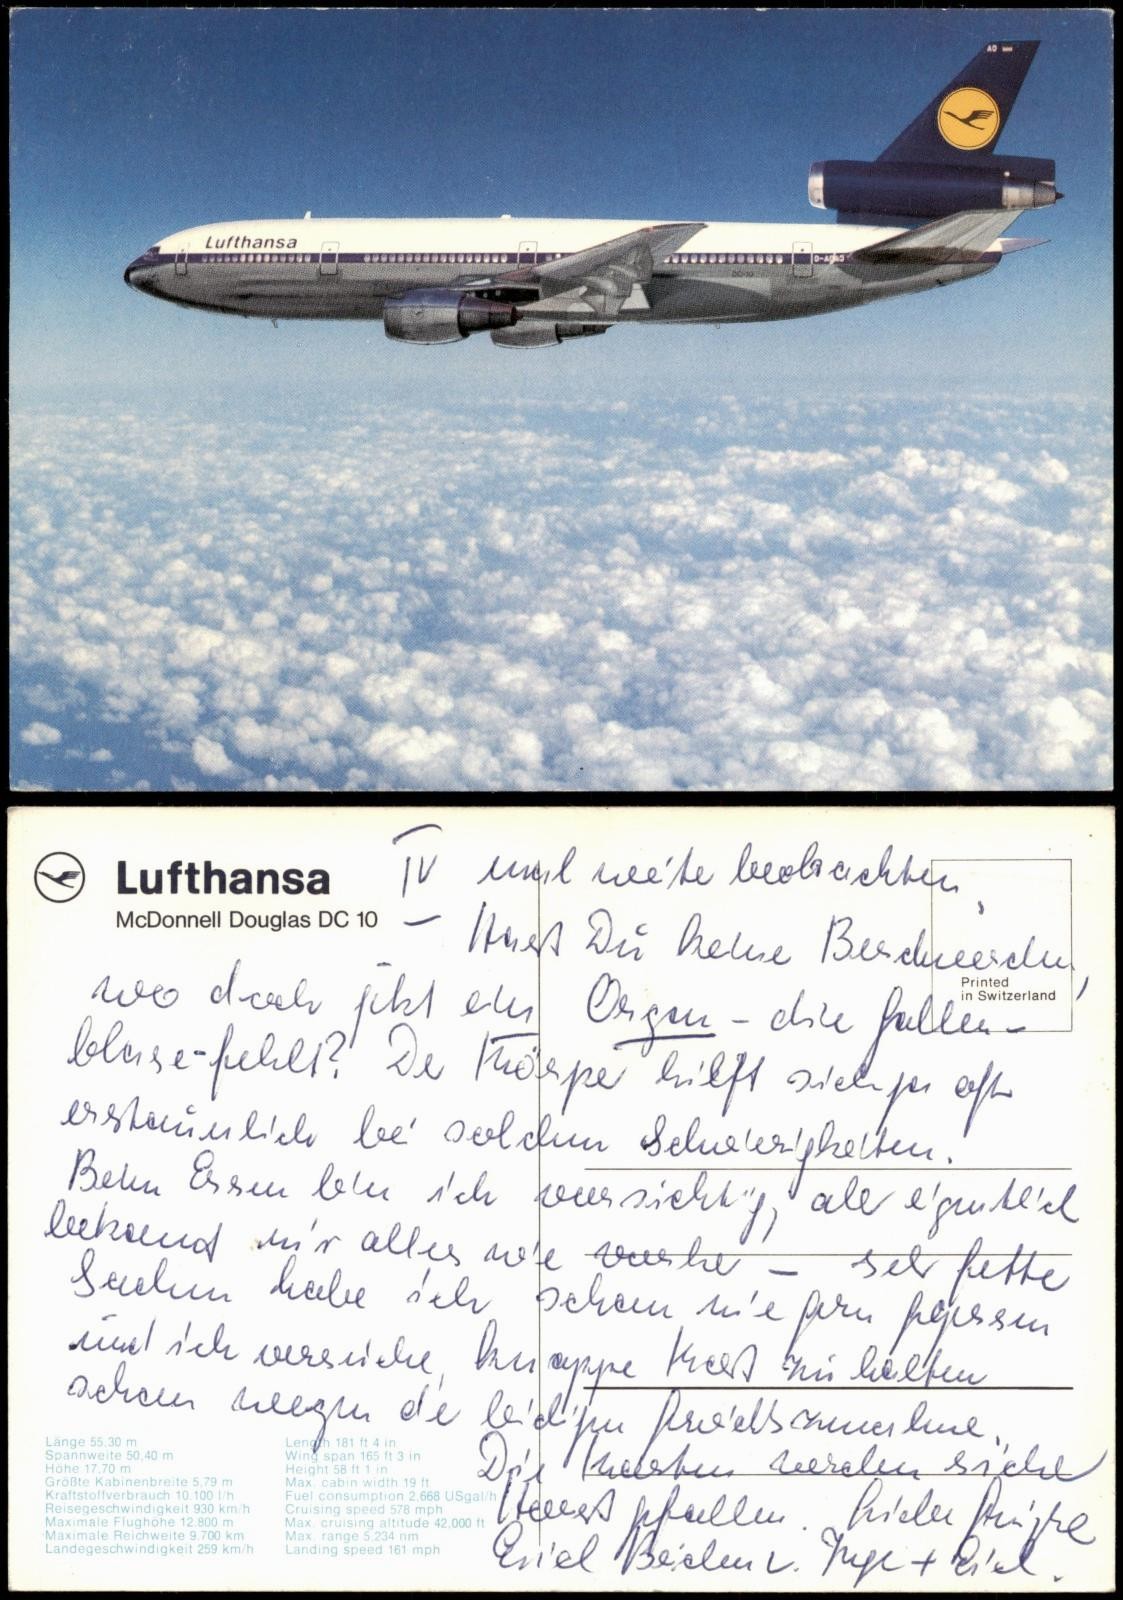 AD
Lufthansa
DC-10
Lufthansa
McDonnell Douglas DC 10
Printed
in Switzerland
IV mal weite beobachten.
Hast Du keine Beschwerden,
wo doch jetzt ein Organ – die Gallen-
blase-fehlt? Der Körper hilft sich ja oft
erstaunlich bei solchen Schwierigkeiten.
Beim Essen bin ich vorsichtig, aber eigentlich
bekommt mir alles wie vorher – sehr fette
Sachen habe ich schon nie gern gegessen
und ich versuche, knappe Kost zu halten
schon wegen der leidigen Gewichtszunahme.
Die Karten werden sicher
Horst gefallen. Viele Grüße
Euch Beiden v. Inge +
Länge 55,30 m
Spannweite 50,40 m
Höhe 17,70 m
Größte Kabinenbreite 5,79 m
Kraftstoffverbrauch 10.100 l/h
Reisegeschwindigkeit 930 km/h
Maximale Flughöhe 12.800 m
Maximale Reichweite 9.700 km
Landegeschwindigkeit 259 km/h
Length 181 ft 4 in
Wing span 165 ft 3 in
Height 58 ft 1 in
Max. cabin width 19 ft
Fuel consumption 2,668 USgal/h
Cruising speed 578 mph
Max. cruising altitude 42,000 ft
Max. range 5.234 nm
Landing speed 161 mph